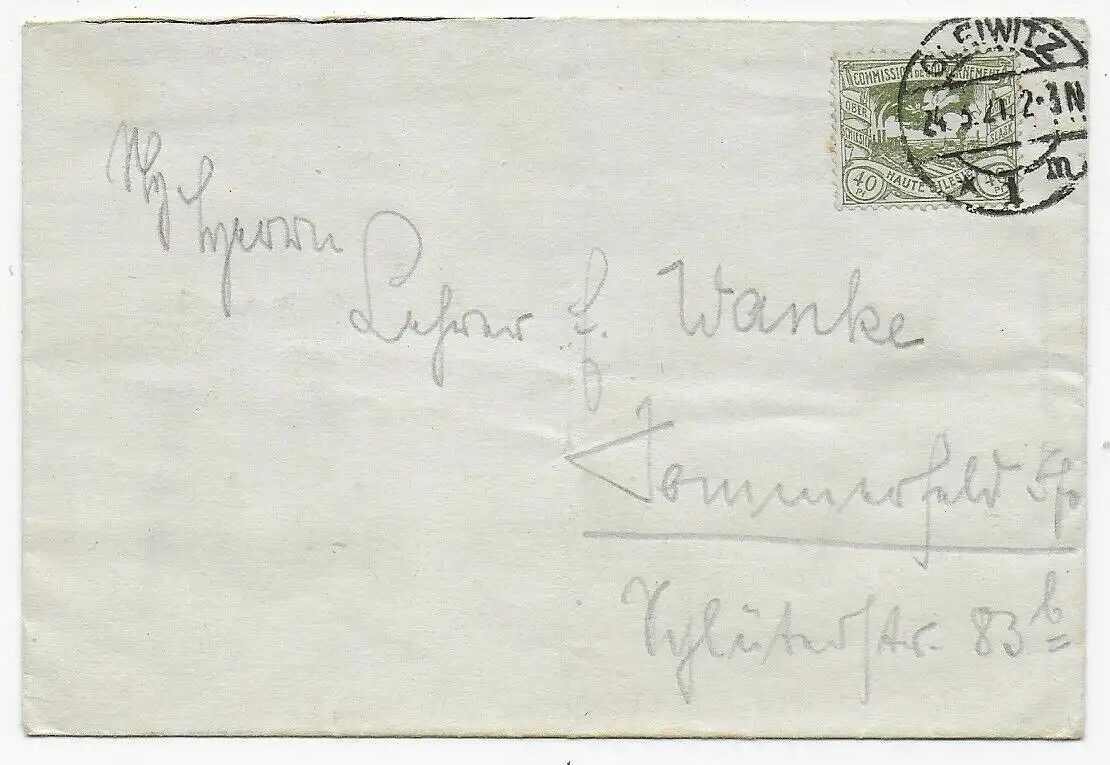 GLEIWITZ
24.5.21. 2-3N
* 1 m
COMMISSION DE GOUVERNEMENT
OBER SCHLESIEN
GÓRNY ŚLĄSK
40 PF HAUTE SILESIE 40 PF
Herrn
Lehrer F. Wanke
Sommerfeld
Schlüterstr. 83b